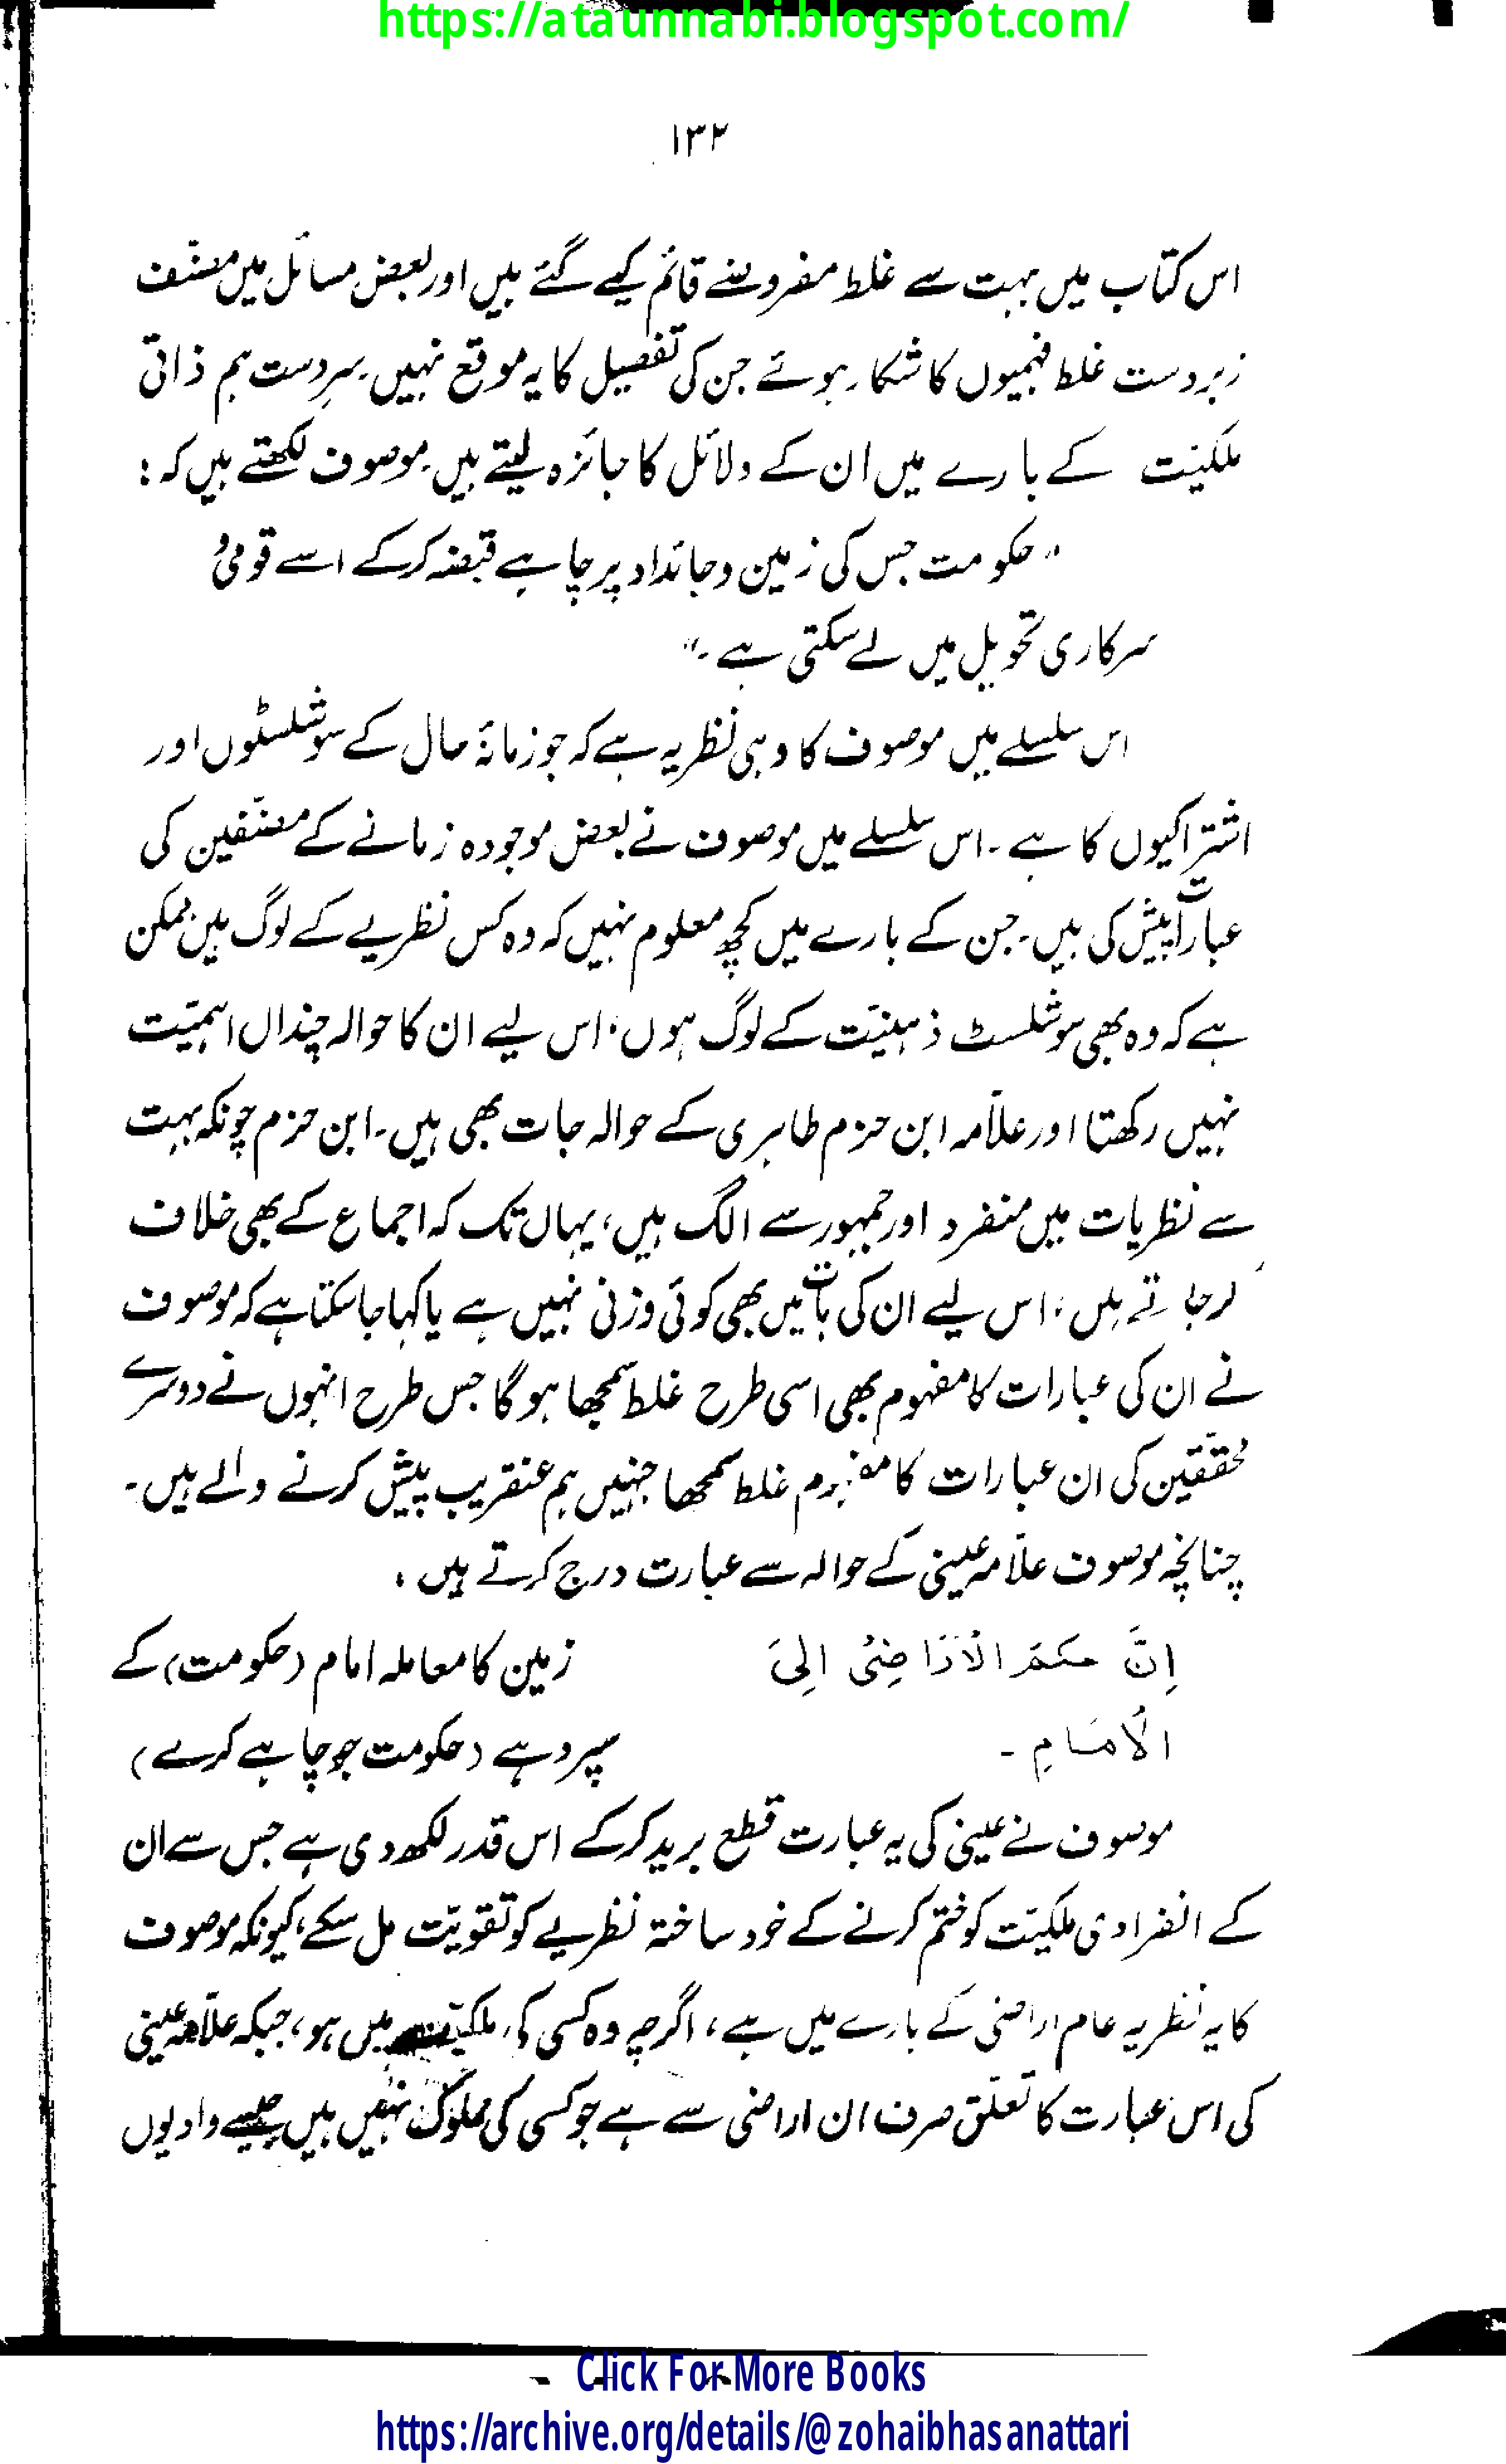 https://ataunnabi.blogspot.com/
۱۳۲
اس کتاب میں بہت سے غلط مفروضے قائم کیے گئے ہیں اور بعض مسائل میں مصنّف
زبردست غلط فہمیوں کا شکار ہوئے جن کی تفصیل کا یہ موقع نہیں۔ سرِدست ہم ذاتی
ملکیّت کے بارے میں ان کے دلائل کا جائزہ لیتے ہیں۔ موصوف لکھتے ہیں کہ :
"حکومت جس کی زمین و جائداد پر چاہے قبضہ کرکے اسے قومی و
سرکاری تحویل میں لے سکتی ہے۔"
اس سلسلے میں موصوف کا وہی نظریہ ہے کہ جو زمانۂ حال کے سوشلسٹوں اور
اشتراکیوں کا ہے۔ اس سلسلے میں موصوف نے بعض موجودہ زمانے کے مصنّفین کی
عبارات پیش کی ہیں۔ جن کے بارے میں کچھ معلوم نہیں کہ وہ کس نظریے کے لوگ ہیں ممکن
ہے کہ وہ بھی سوشلسٹ ذہنیّت کے لوگ ہوں، اس لیے ان کا حوالہ چنداں اہمیّت
نہیں رکھتا اور علاّمہ ابن حزم ظاہری کے حوالہ جات بھی ہیں۔ ابن حزم چونکہ بہت
سے نظریات میں منفرد اور جمہور سے الگ ہیں، یہاں تک کہ اجماع کے بھی خلاف
کر جاتے ہیں، اس لیے ان کی بات میں بھی کوئی وزنی نہیں ہے یا کہا جا سکتا ہے کہ موصوف
نے ان کی عبارات کا مفہوم بھی اسی طرح غلط سمجھا ہوگا جس طرح انہوں نے دوسرے
محقّقین کی ان عبارات کا مفہوم غلط سمجھا جنہیں ہم عنقریب پیش کرنے والے ہیں۔
چنانچہ موصوف علاّمہ عینی کے حوالہ سے عبارت درج کرتے ہیں :
اِنَّ حکمَ الْاَرَاضِیْ اِلیَ
زمین کا معاملہ امام (حکومت) کے
الْاِمَامِ ۔
سپرد ہے (حکومت جو چاہے کرے)
موصوف نے عینی کی یہ عبارت قطع برید کرکے اس قدر لکھ دی ہے جس سے ان
کے انفرادی ملکیّت کو ختم کرنے کے خود ساختہ نظریے کو تقویّت مل سکے، کیونکہ موصوف
کا یہ نظریہ عام اراضی کے بارے میں ہے، اگرچہ وہ کسی کی ملکیّت میں ہو، جبکہ علاّمہ عینی
کی اس عبارت کا تعلّق صرف ان اراضی سے ہے جو کسی کی مملوک نہیں ہیں جیسے وادیوں
Click For More Books
https://archive.org/details/@zohaibhasanattari